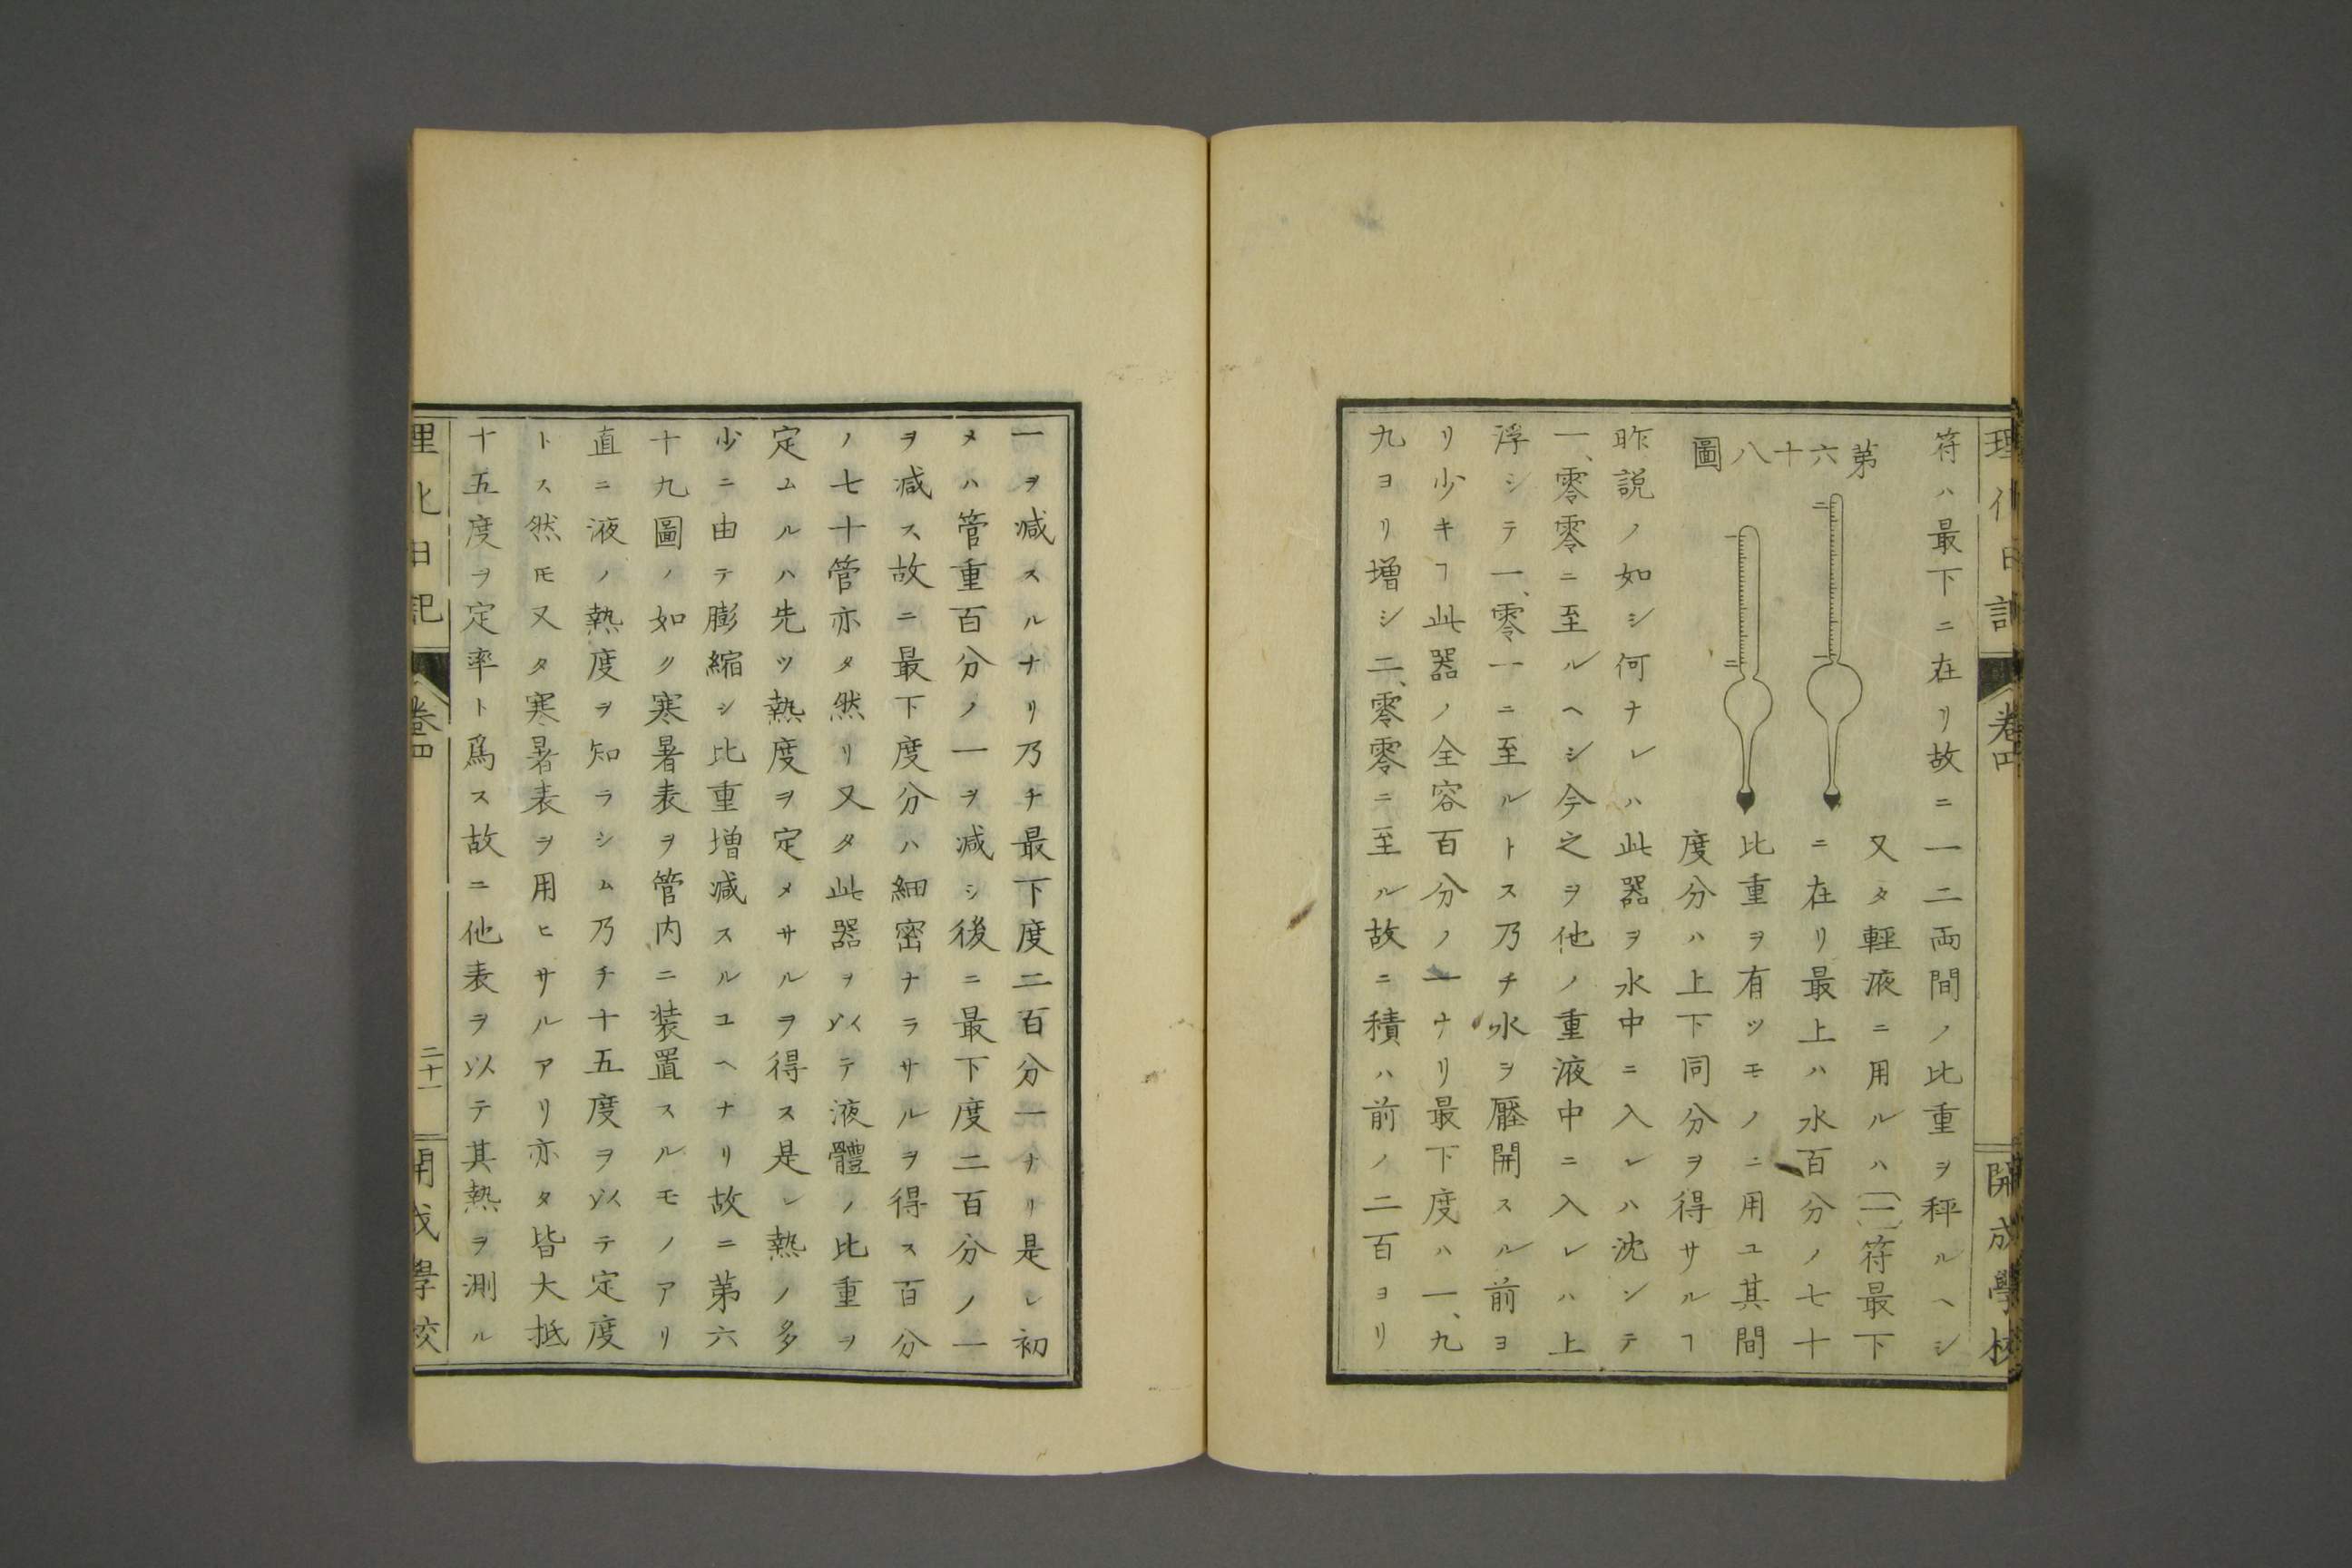 理化日記
卷四
開成學校
符ハ最下ニ在リ故ニ一二両間ノ比重ヲ秤ルヘシ
第六十八圖
又タ輕液ニ用ルハ(一)符最下
ニ在リ最上ハ水百分ノ七十
比重ヲ有ツモノニ用ユ其間
度分ハ上下同分ヲ得サルヿ
昨説ノ如シ何ナレハ此器ヲ水中ニ入レハ沈ンテ
一、零零ニ至ルヘシ今之ヲ他ノ重液中ニ入レハ上
浮シテ一、零一ニ至ルトス乃チ水ヲ壓開スル前ヨ
リ少キヿ此器ノ全容百分ノ一ナリ最下度ハ一、九
九ヨリ増シ二、零零ニ至ル故ニ積ハ前ノ二百ヨリ
一ヲ減スルナリ乃チ最下度二百分一ナリ是レ初
メハ管重百分ノ一ヲ減シ後ニ最下度二百分ノ一
ヲ減ス故ニ最下度分ハ細密ナラサルヲ得ス百分
ノ七十管亦タ然リ又タ此器ヲ以テ液體ノ比重ヲ
定ムルハ先ツ熱度ヲ定メサルヲ得ス是レ熱ノ多
少ニ由テ膨縮シ比重増減スルユヘナリ故ニ第六
十九圖ノ如ク寒暑表ヲ管内ニ装置スルモノアリ
直ニ液ノ熱度ヲ知ラシム乃チ十五度ヲ以テ定度
トス然𪜈又タ寒暑表ヲ用ヒサルアリ亦タ皆大抵
十五度ヲ定率ト爲ス故ニ他表ヲ以テ其熱ヲ測ル
理化日記
卷四
二十一
開成學校